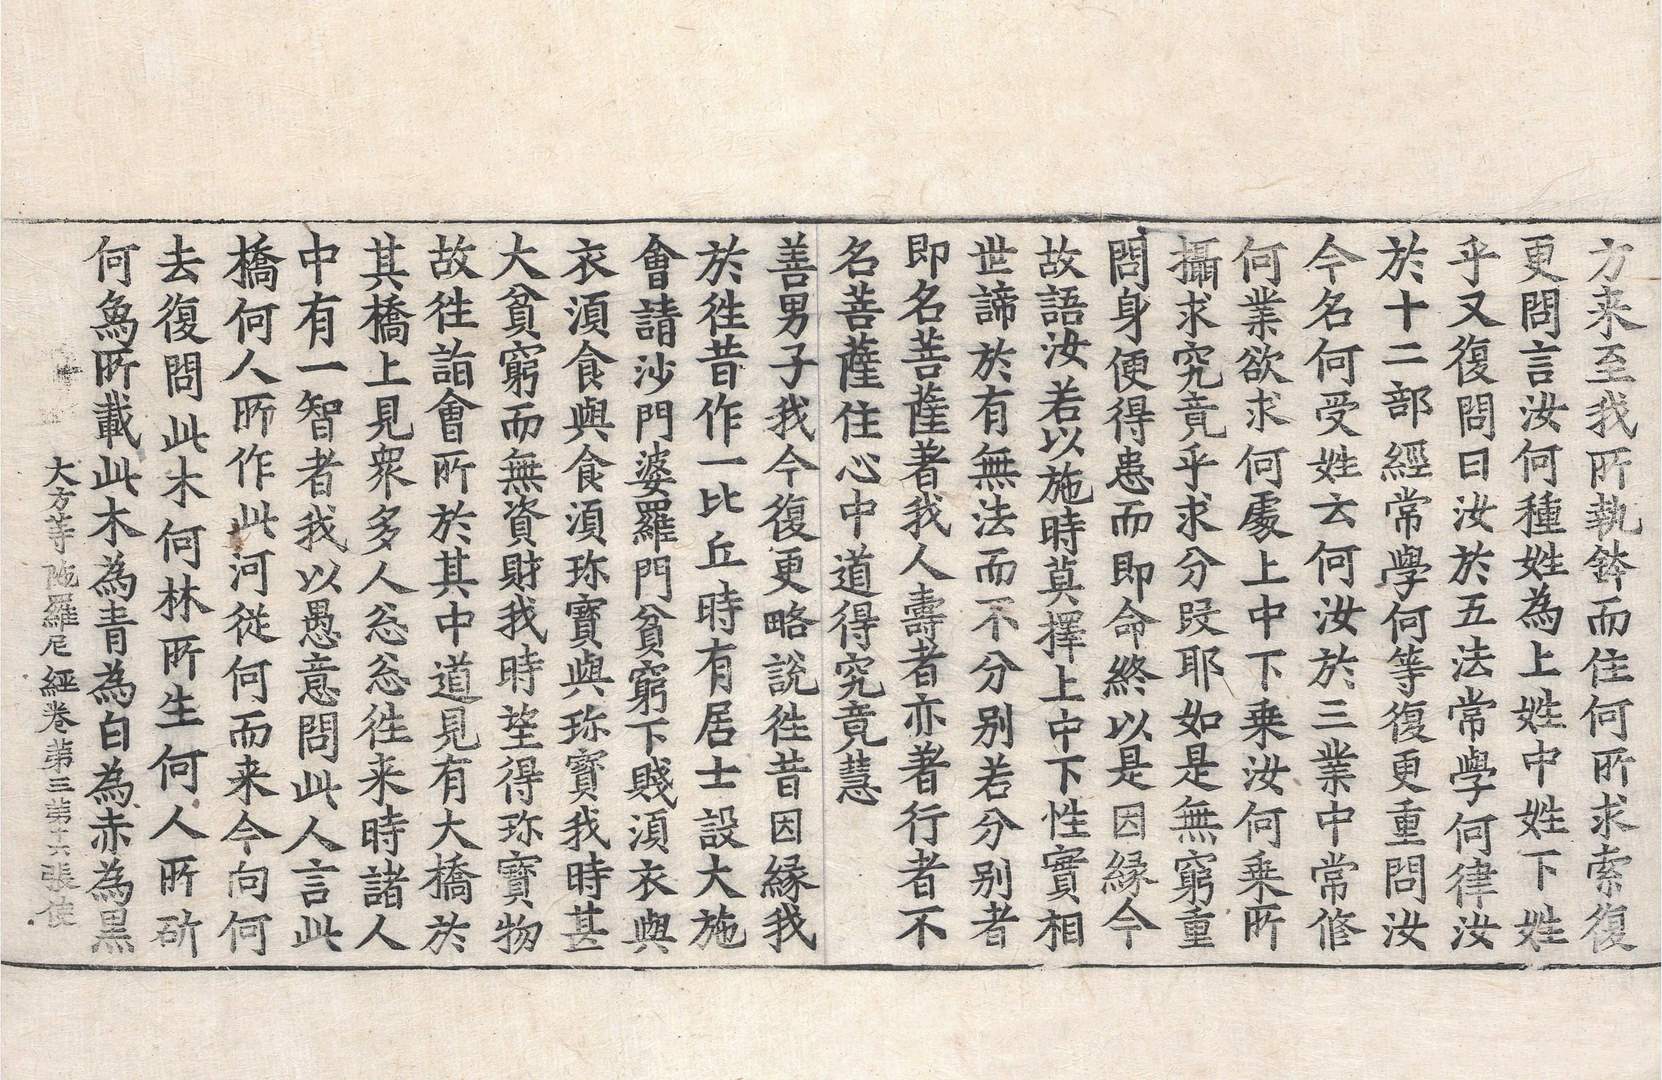 方来至我所執鉢而住何所求索復
更問言汝何種姓為上姓中姓下姓
乎又復問曰汝於五法常學何律汝
於十二部經常學何等復更重問汝
今名何受姓云何汝於三業中常修
何業欲求何處上中下乗汝何乗所
攝求究竟乎求分叚耶如是無窮重
問身便得患而即命終以是因縁今
故語汝若以施時莫擇上中下性實相
世諦於有無法而不分別若分別者
即名菩薩者我人壽者亦者行者不
名菩薩住心中道得究竟慧
善男子我今復更略説徃昔因縁我
於徃昔作一比丘時有居士設大施
會請沙門婆羅門貧窮下賤湏衣與
衣湏食與食湏珎寶與珎寶我時甚
大貧窮而無資財我時望得珎寶物
故徃詣會所於其中道見有大橋於
其橋上見衆多人忩忩徃来時諸人
中有一智者我以愚意問此人言此
橋何人所作此河從何而来今向何
去復問此木何林所生何人所斫
何象所載此木為青為白為赤為黒
大方等陁羅尼經卷第三第十六張使